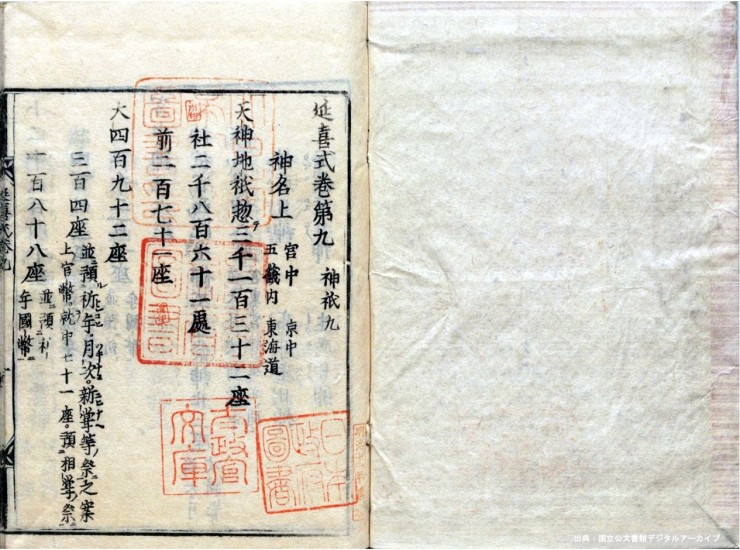 延喜式卷第九　神祇九
神名上　宮中　京中
五畿内　東海道
天神地祇惣三千一百三十二座
社二千八百六十一處
前二百七十一座
大四百九十二座
三百四座　並預祈年月次新嘗等祭之案
上官幣就中七十一座預相嘗祭
一百八十八座　並預祈
年國幣
太政官
文庫
日本
政府
圖書
出典：国立公文書館デジタルアーカイブ